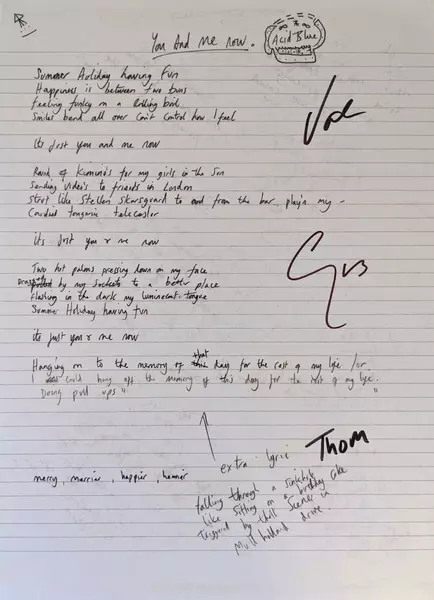 You And me now.
Acid Blue
Summer Holiday having Fun
Happiness is between two buns
Feeling funky on a Rolling bend
Smiles bend all over Can't Control how I feel
Its Just you and me now
Rack of Kimino's for my girls in the Sun
Sending Video's to friends in London
Strut like Stellan Skarsguard to and from the bar play'n my -
Candied Tangerine telecaster
its Just you & me now
Two hot palms pressing down on my face
by my sockets to a better place
flashing in the dark my luminecent tongue
Summer Holiday having fun
its just you & me now
Hanging on to the memory of that day for the rest of my life /or
I could hang off the memory of this day for the rest of my life.
Doing pull ups "
extra lyric
merry, merrier, happier,
falling through a sinkhole
like sitting on a birthday cake
Triggered by that scene in
Mulholland drive.
Gus
Thom